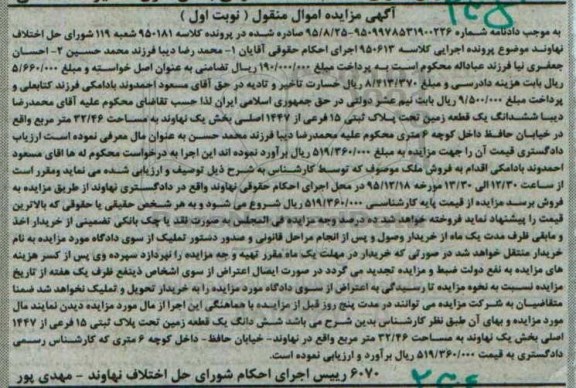 آگهی مزایده اموال منقول ( نوبت اول )
به موجب دادنامه شماره ۹۵۰۹۹۷۸۵۳۱۹۰۰۲۲۶-۹۵/۸/۲۵ صادره شده در پرونده کلاسه ۹۵۰۱۸۱ شعبه ۱۱۹ شورای حل اختلاف
نهاوند موضوع پرونده اجرایی کلاسه ۹۵۰۶۱۳ اجرای احکام حقوقی آقایان ۱- محمد رضا دیبا فرزند محمد حسین ۲- احسان
جعفری نیا فرزند عباداله محکوم است به پرداخت مبلغ ۱۹۰/۰۰۰/۰۰۰ ریال تضامنی به عنوان اصل خواسته و مبلغ ۵/۶۶۰/۰۰۰
ریال بابت هزینه دادرسی و مبلغ ۸/۴۱۳/۳۷۰ ریال خسارت تاخیر و تادیه در حق آقای مسعود احمدوند بادامکی فرزند کتابعلی و
پرداخت مبلغ ۹/۵۰۰/۰۰۰ ریال بابت نیم عشر دولتی در حق جمهوری اسلامی ایران لذا حسب تقاضای محکوم علیه آقای محمدرضا
دیبا ششدانگ یک قطعه زمین تحت پلاک ثبتی ۱۵ فرعی از ۱۴۴۷ اصلی بخش یک نهاوند به مساحت ۳۲/۴۶ متر مربع واقع
در خیابان حافظ داخل کوچه ۶ متری محکوم علیه محمدرضا دیبا فرزند محمد حسن به عنوان مال معرفی نموده است ارزیاب
دادگستری قیمت آن را جهت مزایده به مبلغ ۵۱۹/۳۶۰/۰۰۰ ریال برآورد نموده اند این اجرا به درخواست محکوم له ها اقای مسعود
احمدوند بادامکی اقدام به فروش ملک موصوف که توسط کارشناس به شرح ذیل توصیف و ارزیابی شده می نماید ومقرر است
از ساعت ۱۲/۳۰ الی ۱۳/۳۰ مورخه ۹۵/۱۲/۱۸ در محل اجرای احکام حقوقی نهاوند واقع در دادگستری نهاوند از طریق مزایده به
فروش برسد مزایده از قیمت پایه کارشناسی ۵۱۹/۳۶۰/۰۰۰ ریال شروع می شود و به هر شخص حقیقی یا حقوقی که بالاترین
قیمت را پیشنهاد نماید فروخته خواهد شد ده درصد وجه مزایده فی المجلس به صورت نقد یا چک بانکی تضمینی از خریدار اخذ
و مابقی ظرف مدت یک ماه از خریدار وصول و پس از انجام مراحل قانونی و صدور دستور تملیک از سوی دادگاه مورد مزایده به نام
خریدار منتقل خواهد شد در صورتی که خریدار در مهلت یک ماه مقرر تهیه و چه مزایده را نپردازد سپرده وی پس از کسر هزینه
های مزایده به نفع دولت ضبط و مزایده تجدید می گردد در صورت ایصال اعتراض از سوی اشخاص ذینفع ظرف یک هفته از تاریخ
مزایده نسبت به نحوه مزایده تا رسیدگی به اعتراض از سوی دادگاه مورد مزایده را به خریدار تحویل و تملیک نخواهد شد ضمنا
متقاضیان به شرکت مزایده می توانند در مدت پنج روز قبل از مزایده با هماهنگی این اجرا از مال مورد مزایده دیدن نمایند مال
مورد مزایده و بهای آن طبق نظر کارشناس بدین شرح می باشد شش دانگ یک قطعه زمین تحت پلاک ثبتی ۱۵ فرعی از ۱۴۴۷
اصلی بخش یک نهاوند به مساحت ۳۲/۴۶ متر مربع واقع در نهاوند- خیابان حافظ- داخل کوچه ۶ متری که کارشناس رسمی
دادگستری به قیمت ۵۱۹/۳۶۰/۰۰۰ ریال برآورد و ارزیابی نموده است.
۶۰۷۰ رییس اجرای احکام شورای حل اختلاف نهاوند - مهدی پور